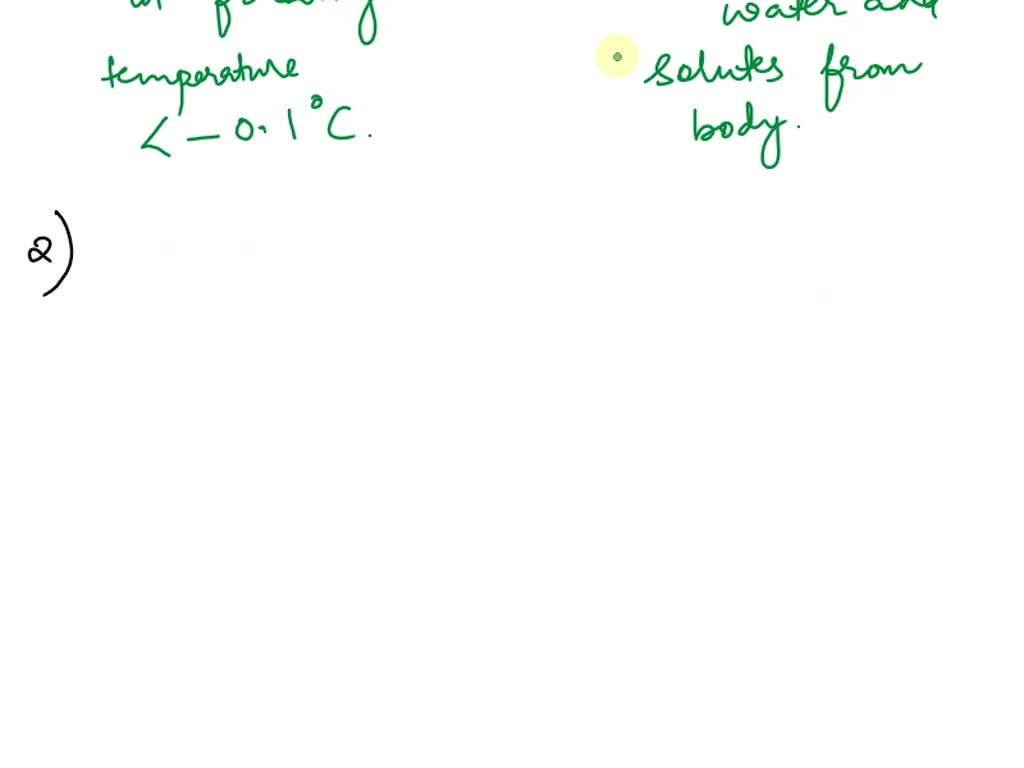 temperature
< - 0.1°C.
water and
solutes from
body.
2)